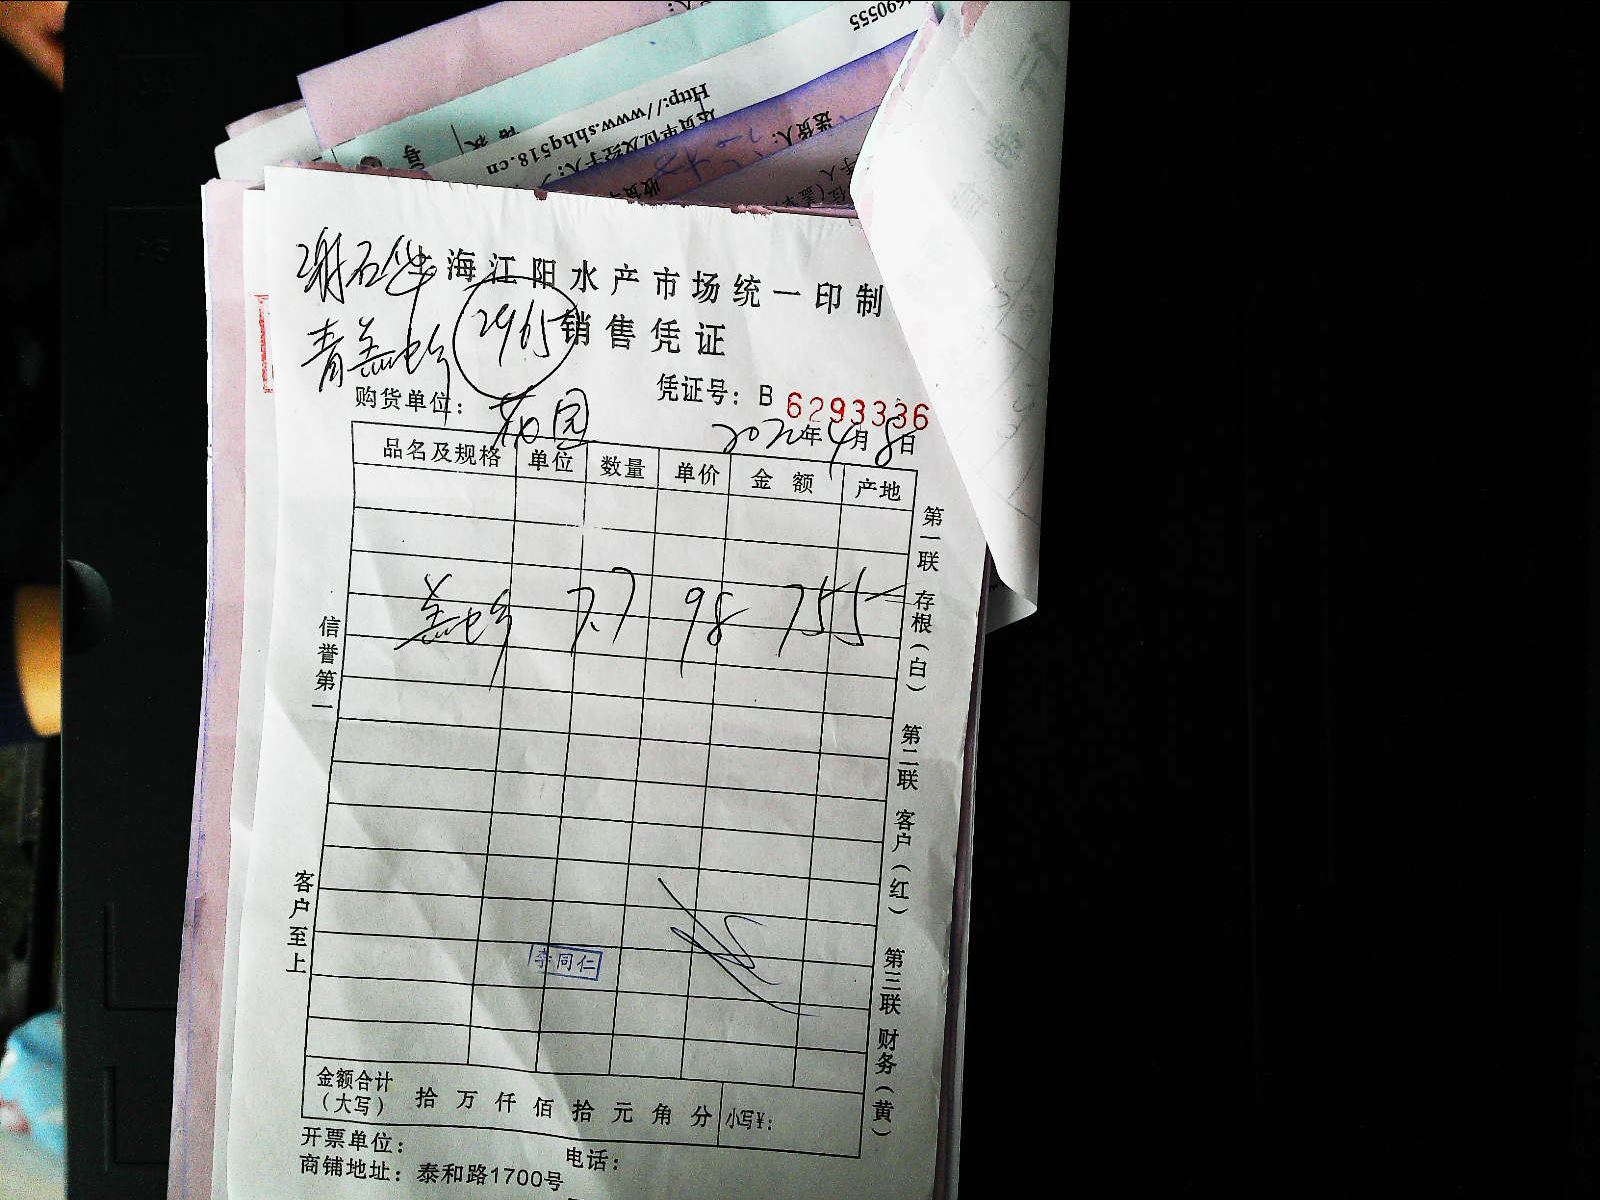 690555
Http://www.shhq518.cn
退货单位及经手人:
送货人:
谢石华
海江阳水产市场统一印制
青羔虫乡
2965
销售凭证
凭证号: B 6293336
购货单位: 花园
2022年4月8日
品名及规格 单位 数量 单价 金额 产地
羔虫乡 7.7 98 755
李同仁
金额合计(大写) 拾万仟佰拾元角分 小写¥:
开票单位: 电话:
商铺地址: 泰和路1700号
信誉第一
客户至上
第一联 存根(白) 第二联 客户(红) 第三联 财务(黄)